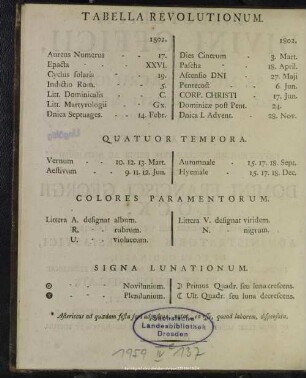 TABELLA REVOLUTIONUM.
1802.
Aureus Numerus - - 17.
Epacta - - XXVI.
Cyclus solaris - - 19.
Indictio Rom. - - 5.
Litt. Dominicalis - C.
Litt. Martyrologii - Gx.
Dnica Septuages. - - 14. Febr.
1802.
Dies Cinerum - 3. Mart.
Pascha - - 18. April.
Ascensio DNI - 27. Maji
Pentecost - - 6. Jun.
CORP. CHRISTI - 17. Jun.
Dominicæ post Pent. 24.
Dnica I. Advent. - 28. Nov.
QUATUOR TEMPORA.
Vernum - 10. 12. 13. Mart.
Aestivum - 9. 11. 12. Jun.
Autumnale - 15. 17. 18. Sept.
Hyemale - 15. 17. 18. Dec.
COLORES PARAMENTORUM.
Littera A. designat album.
R. - rubrum.
U. - violaceum.
Littera V. designat viridem.
N. - nigrum.
SIGNA LUNATIONUM.
Novilunium.
Plenilunium.
☽ Primus Quadr. seu luna crescens.
☾ Ult. Quadr. seu luna decrescens.
* Asteriscus ad quædam festa
quoad laborem, dispensata.
Sächsische
Landesbibliothek
Dresden
1959 IV 137